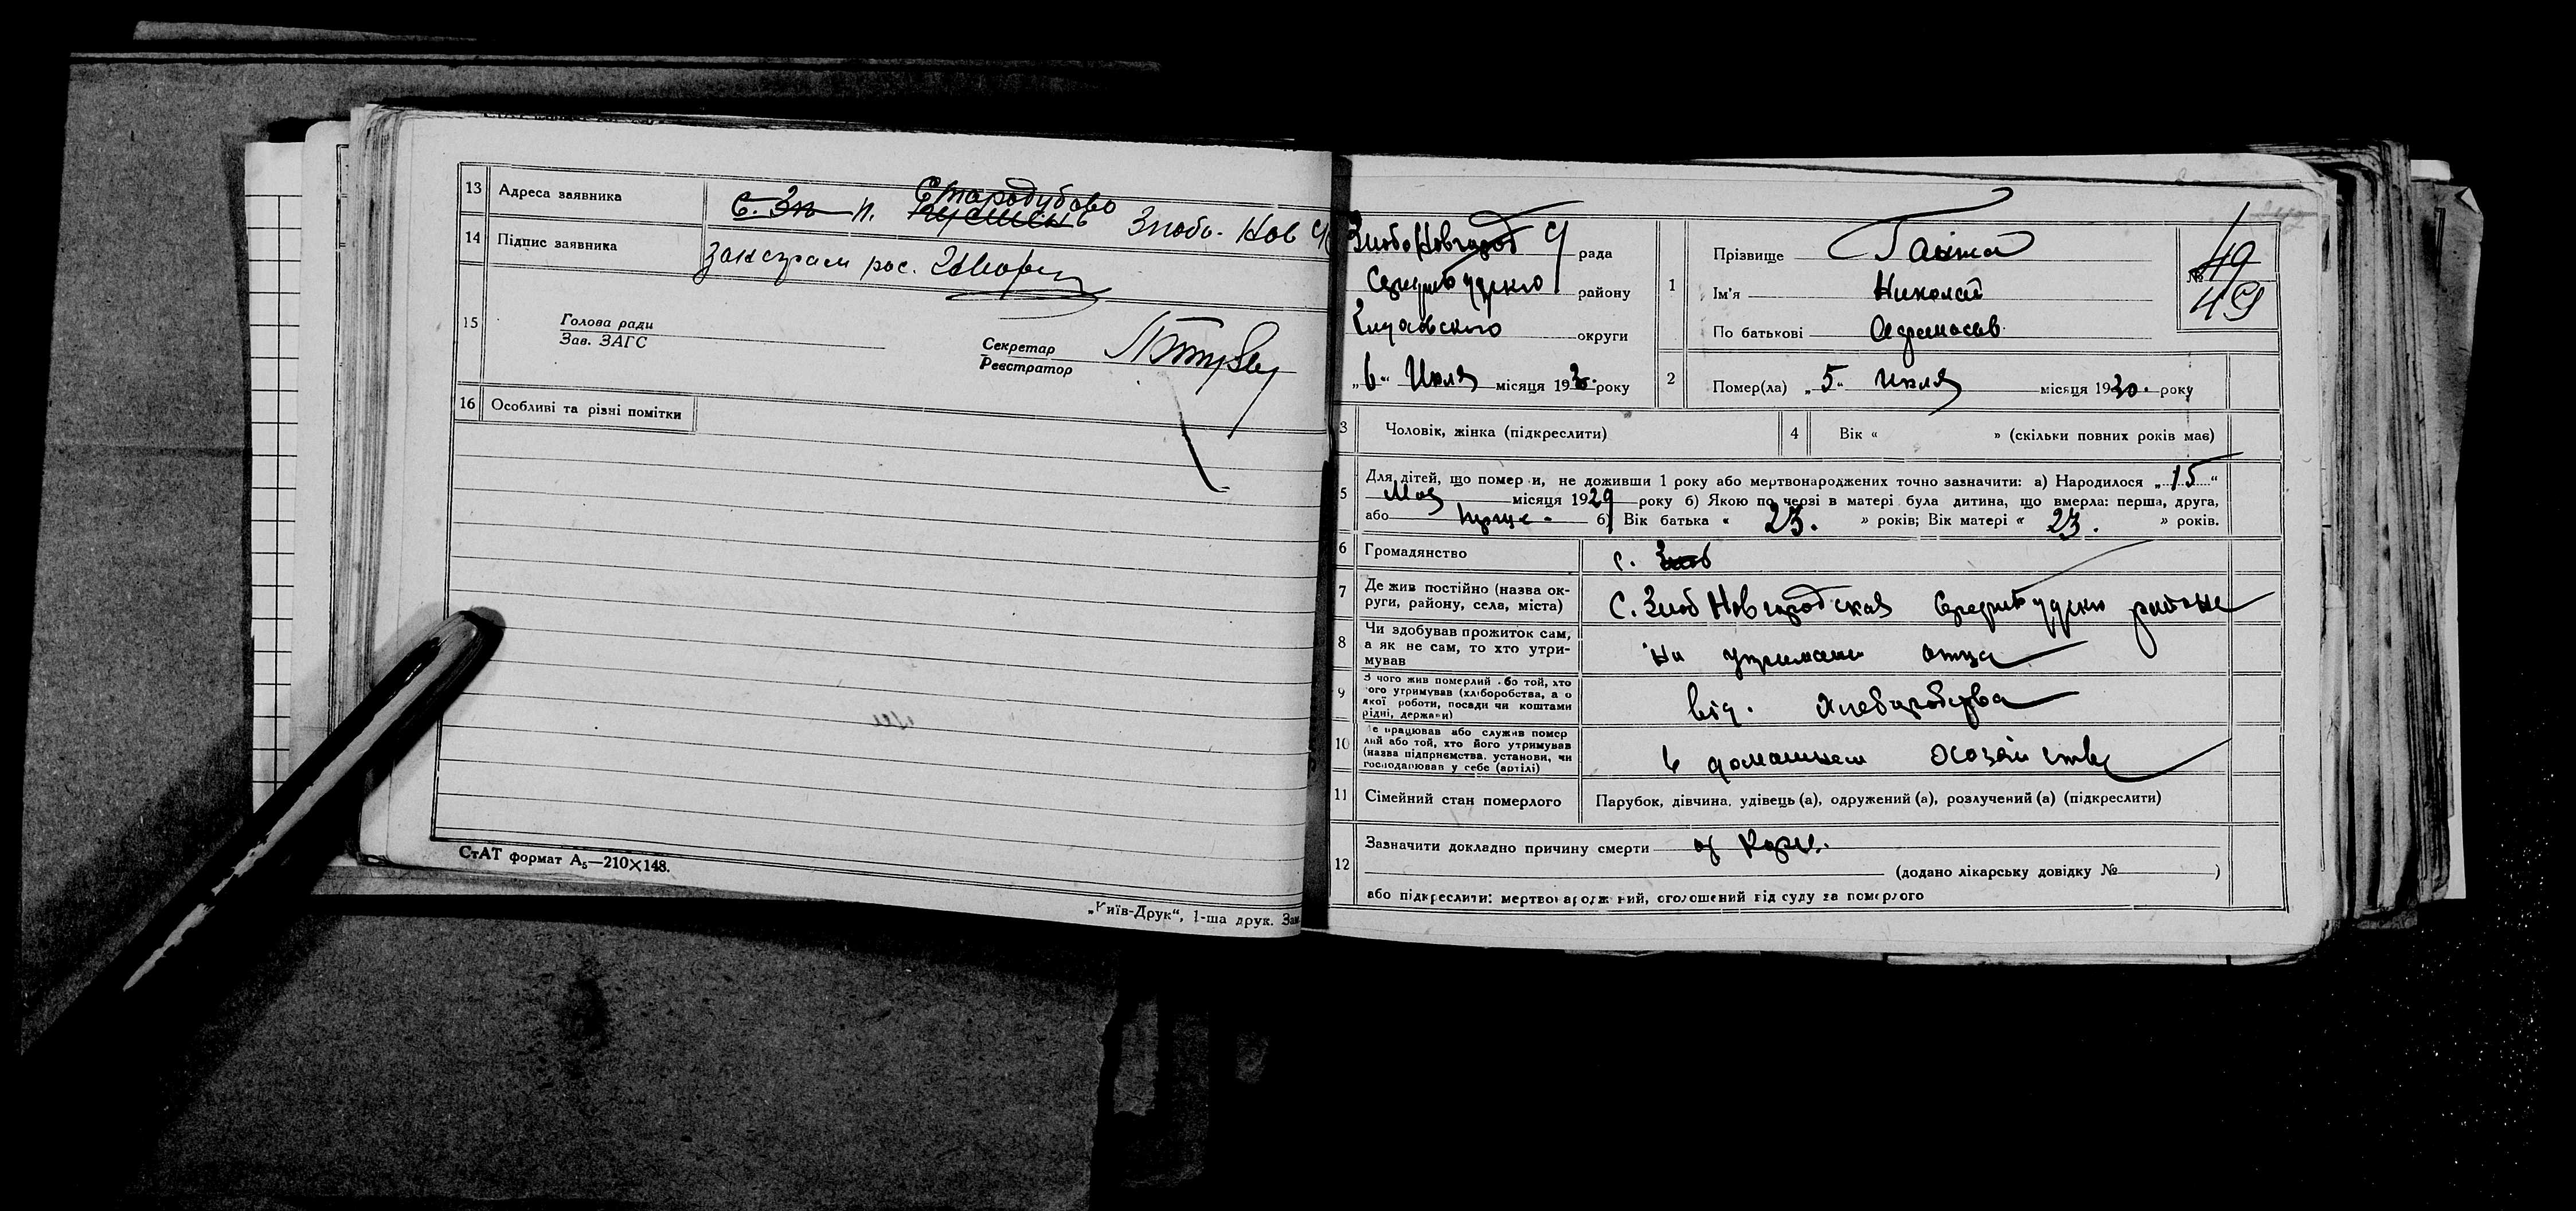 13 Адреса заявника с. Зн п. Стародубово Знобо-Нов
14 Підпис заявника
15 Голова ради
Зав. ЗАГС
Секретар
Реєстратор
16 Особливі та різні помітки
СтАТ формат А₅—210×148.
„Київ-Друк“, 1-ша друк. Зам.
ЗнобоНовгород рада
району
округи
„6“ Июля місяця 1930 року
1 Прізвище
Ім'я Николай
По батькові
№ 49
49
2 Помер(ла) „5“ Июля місяця 1930 року
3 Чоловік, жінка (підкреслити)
4 Вік « » (скільки повних років має)
5 Для дітей, що померли, не доживши 1 року або мертвонароджених точно зазначити: а) Народилося „15“
Мая місяця 1929 року б) Якою по черзі в матері була дитина, що вмерла: перша, друга,
або б) Вік батька « 23. » років; Вік матері « 23. » років.
6 Громадянство с. Зноб
7 Де жив постійно (назва ок-
руги, району, села, міста) С. Зноб Новгородская районе
8 Чи здобував прожиток сам,
а як не сам, то хто утри-
мував на утримани отца
9 З чого жив померлий або той, хто
його утримував (хліборобства, а о
якої роботи, посади чи коштами
рідні, держави) від.
10 Де працював або служив помер
лий або той, хто його утримував
(назва підприємства, установи, чи
господарював у себе (артілі) в домашнем
11 Сімейний стан померлого Парубок, дівчина, удівець (а), одружений (а), розлучений (а) (підкреслити)
12 Зазначити докладно причину смерти
(додано лікарську довідку № )
або підкреслити: мертвонароджений, оголошений від суду за померлого